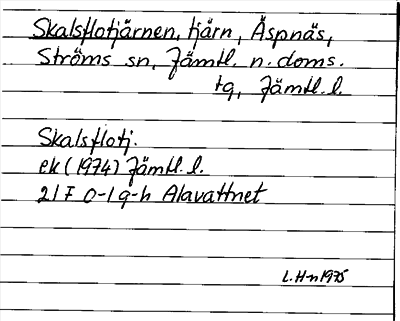 Skalsflotjärnen, tjärn, Äspnäs,
Ströms sn, Jämtl. n. doms.
tg, Jämtl. l.
Skalsflotj.
ek (1974) Jämtl. l.
21 F 0-1 g-h Alavattnet
L.H-n 1975